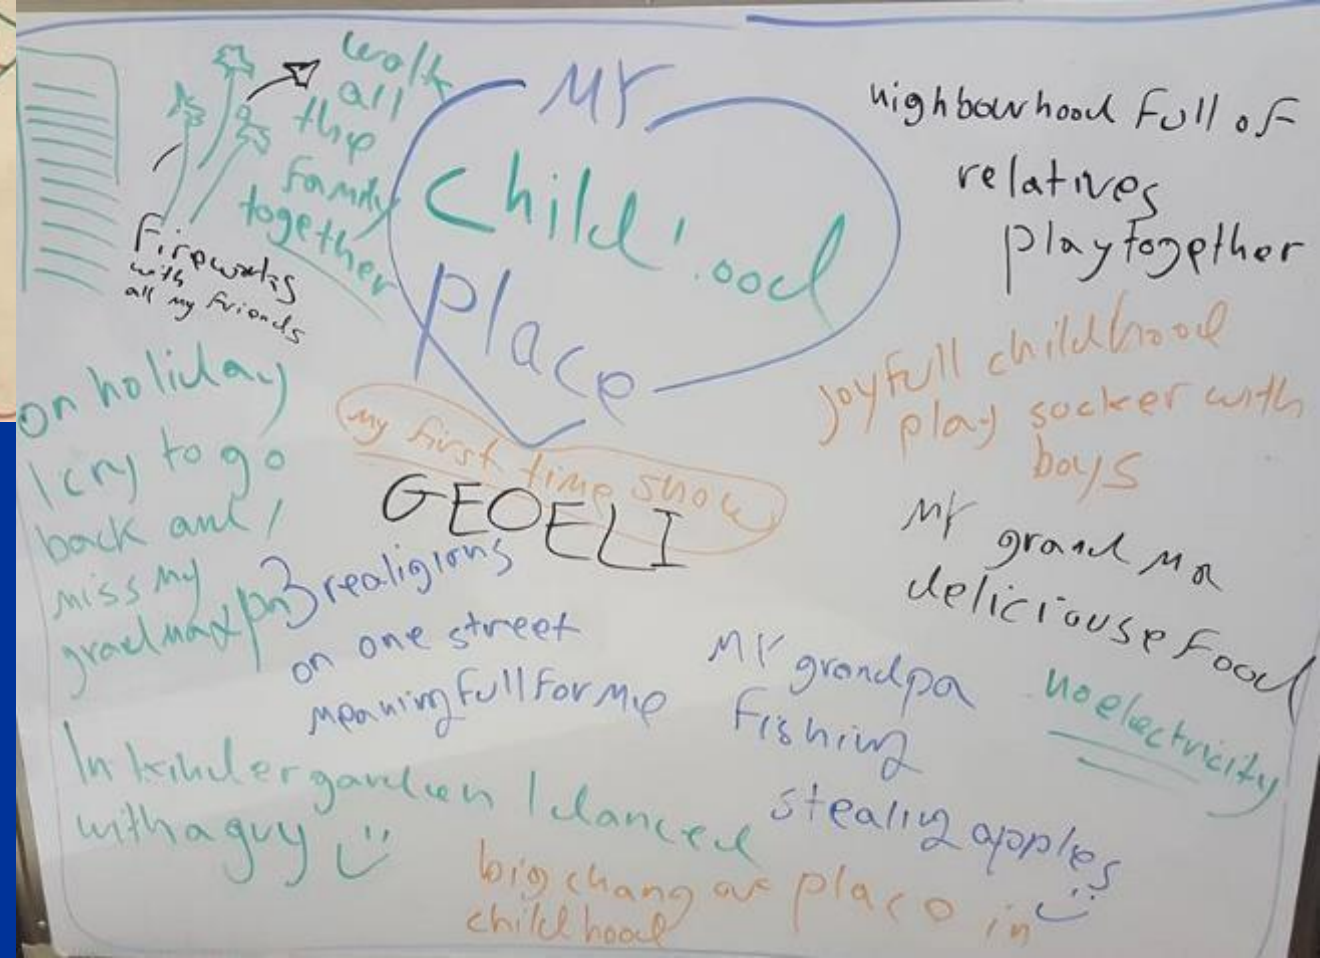 MY
Child'ood
place
walk
all
the
family
together
Fireworks
with
all my friends
nighbourhood full of
relatives
play together
joyfull childhood
play socker with
boys
on holiday
I cry to go
back and I
miss my
my first time snow
GEOELI
MY grand Ma
deliciouse Food
3 realigions
on one street
meaningfull For me
MY grandpa
Fishing
no electricity
stealing apples
In kindergarden I danced
with a guy
big chang of place in
childhood